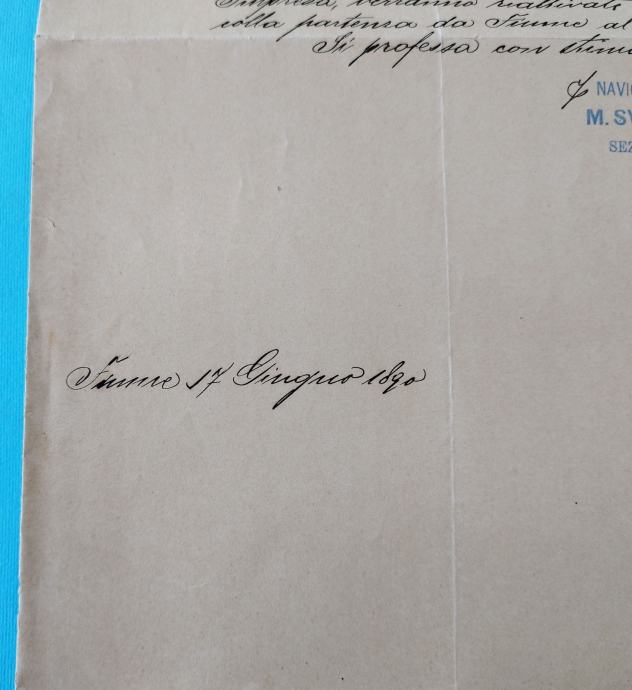 Impresa, verranno riattivate
colla partenza da Fiume al
Si professa con stima
NAVIG
M. SV
SEZ
Fiume 17 Giugno 1890